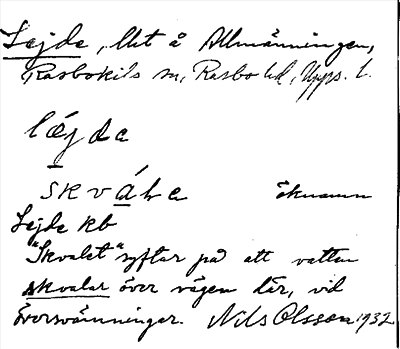 Lejde, lht å Allmänningen,
Rasbokils sn, Rasbo hd, Upps. l.
lǽjda
skvála öknamn
Lejde kb
"Skvalet" syftar på att vatten
skvalar över vägen där, vid
översvämningar. Nils Olsson 1932